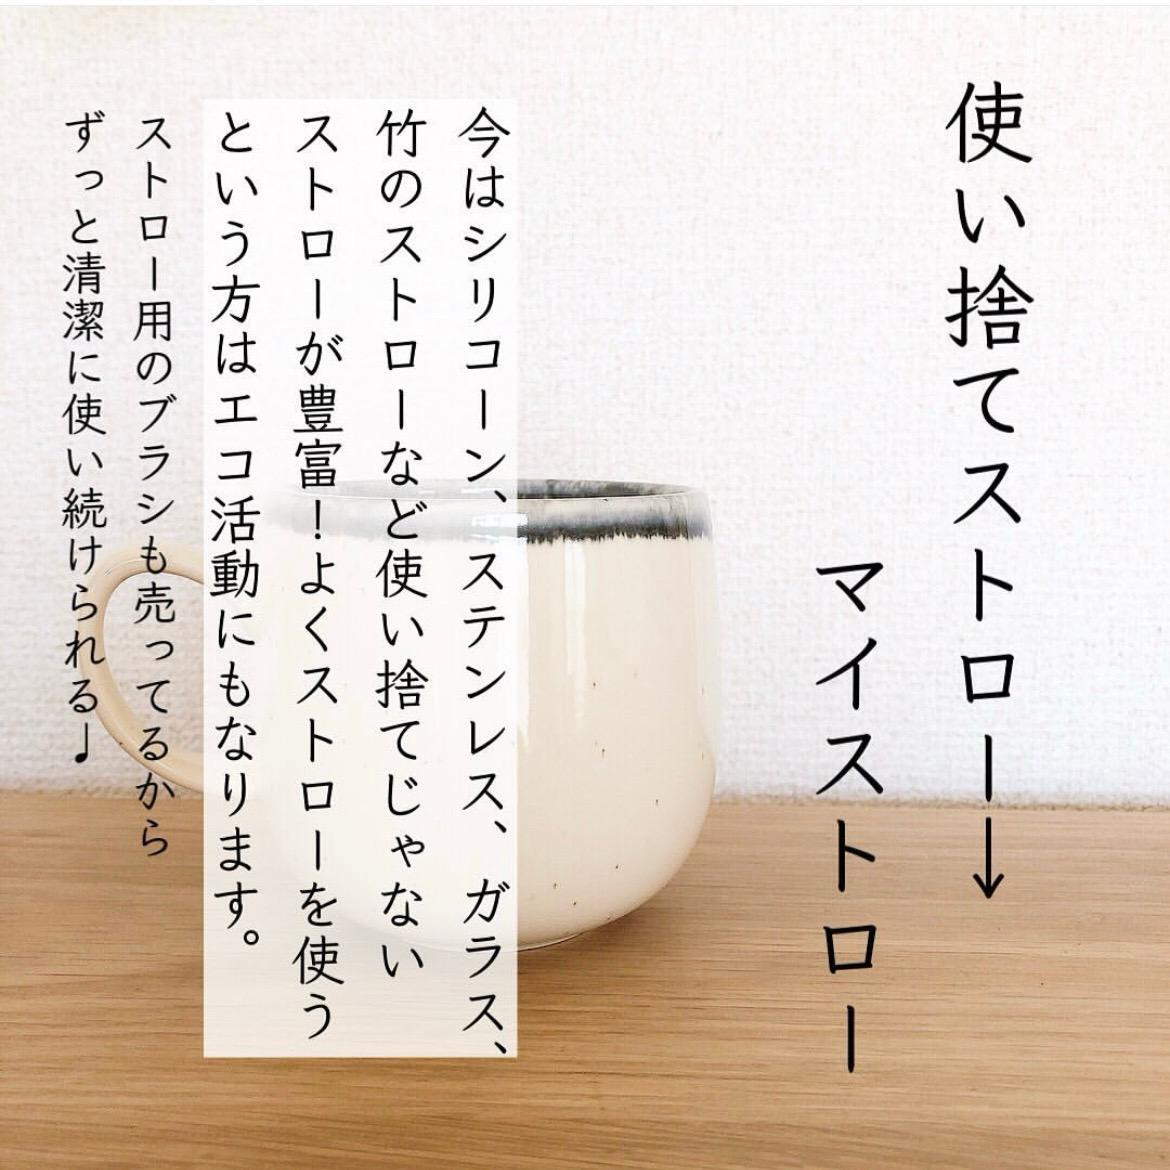 使い捨てストロー→
マイストロー
今はシリコーン、ステンレス、ガラス、
竹のストローなど使い捨てじゃない
ストローが豊富！よくストローを使う
という方はエコ活動にもなります。
ストロー用のブラシも売ってるから
ずっと清潔に使い続けられる♩